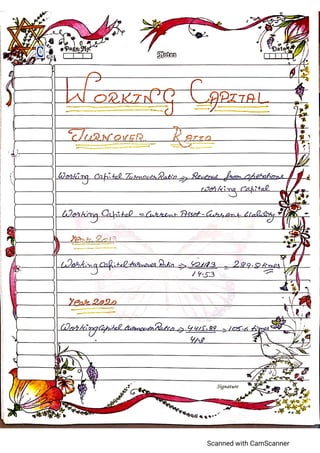 Page No.
Notes
Date
WORKING CAPITAL
TURNOVER RATIO
Working Capital Turnover Ratio ⇒ Revenue from operations
working Capital
Working Capital = Current Asset - Current liability
Year
Working Capital turnover Ratio ⇒
14.53
times
Year 2020
Working Capital turnover Ratio ⇒ 4415.89 = times
Signature
Scanned with CamScanner